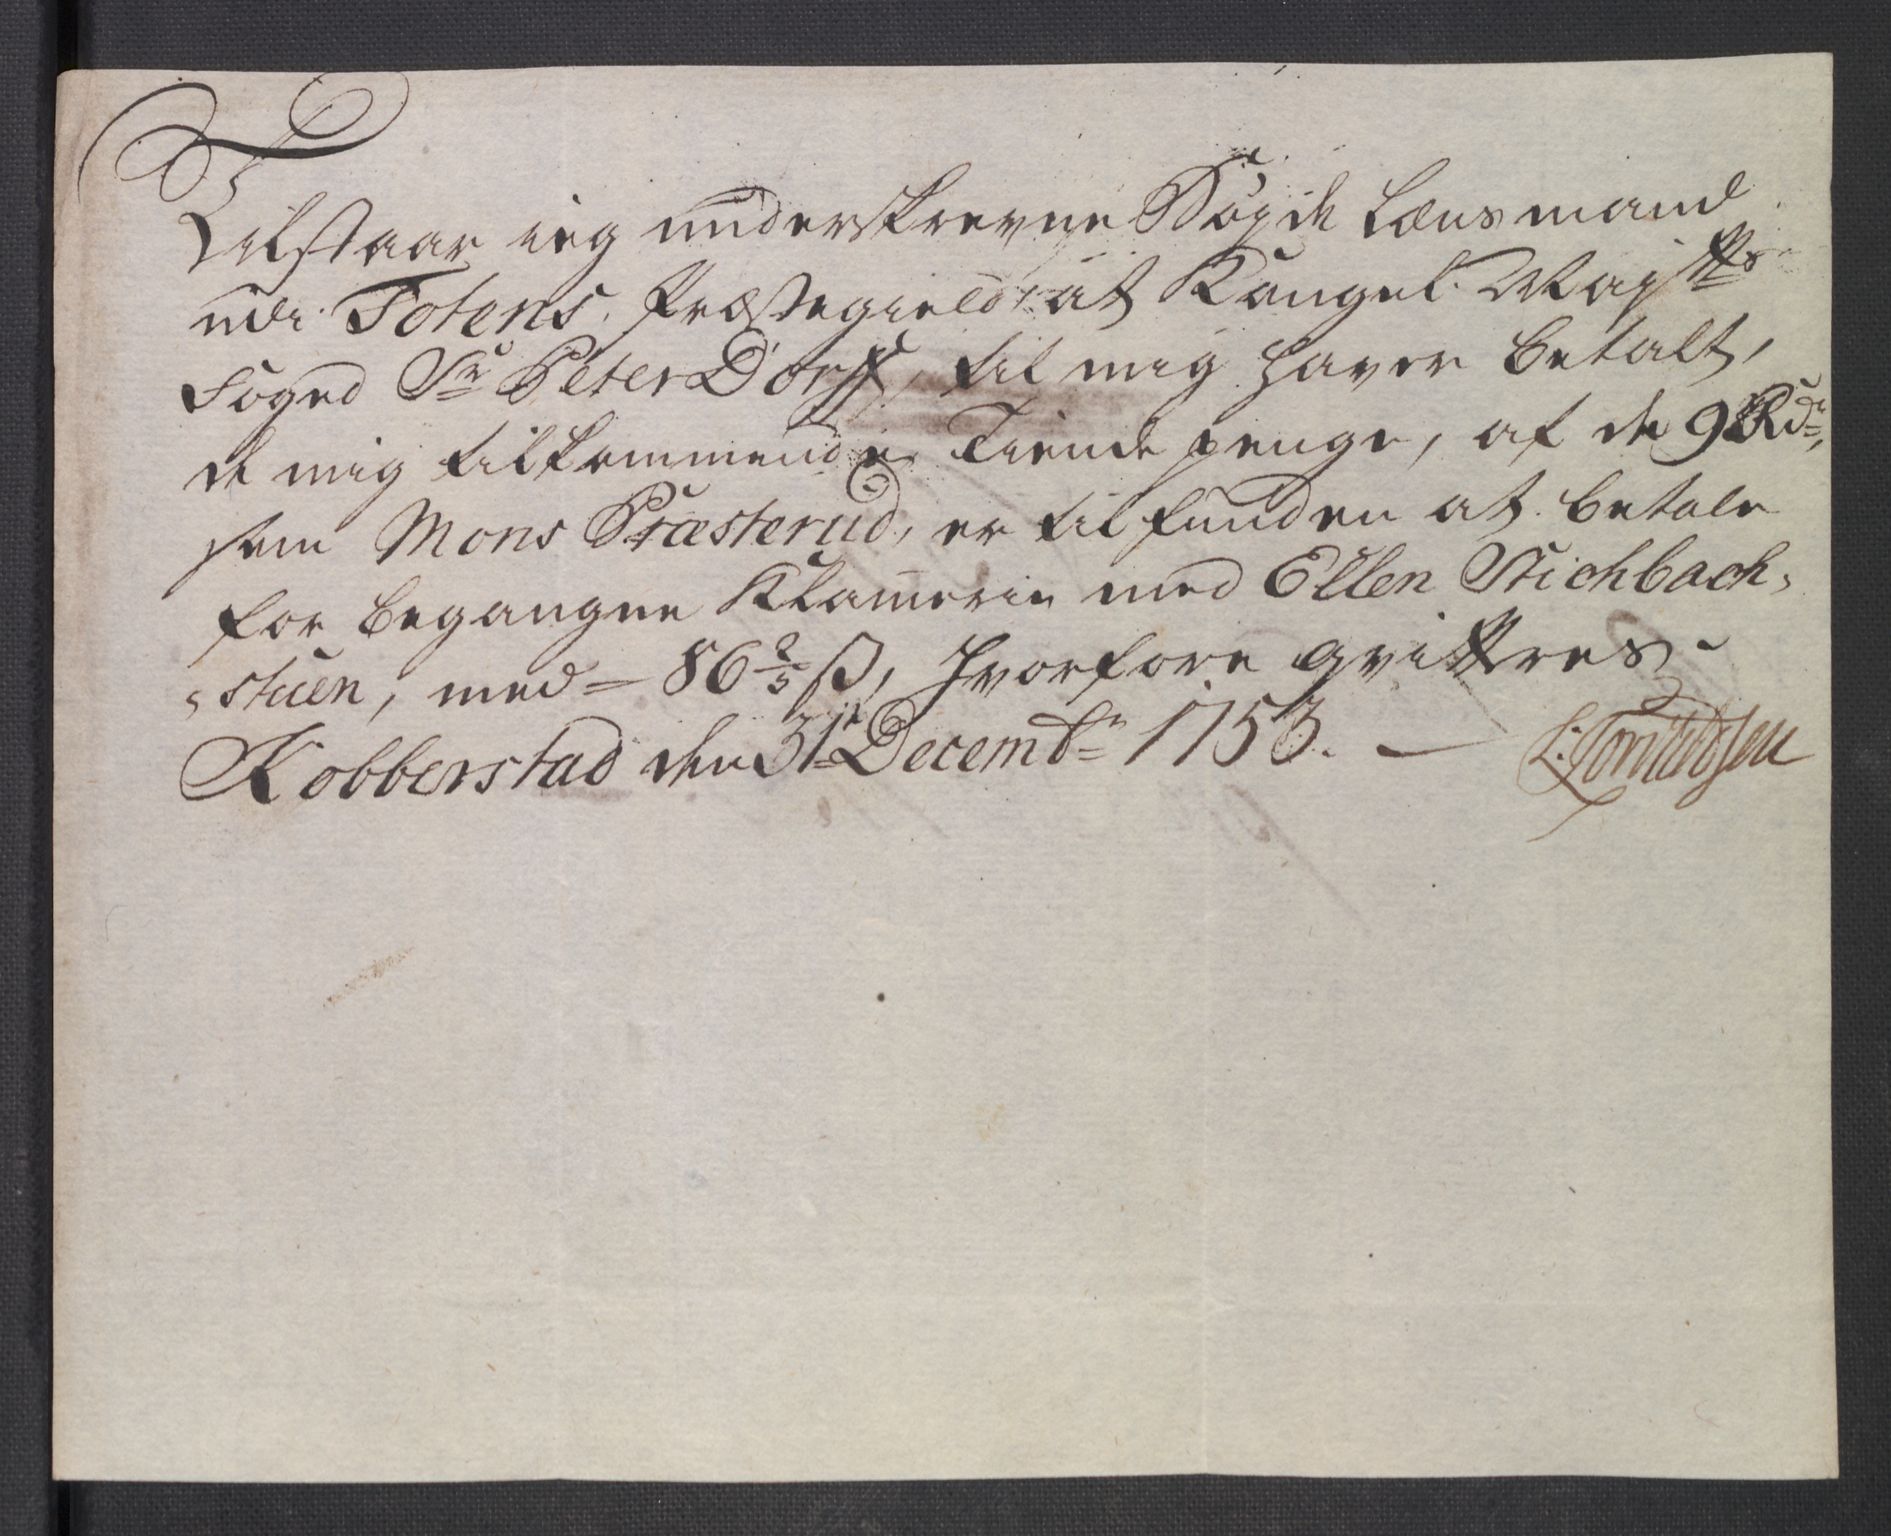 Tilstaar ieg underskrevne Bøyde Lænsmand
udi Totens Præstegield, at Kongel. Maj:tts
Foged Sr. Peter Dorff, til mig haver betalt,
de mig tilkommende Tiende penge, af de 9 Rdr.,
som Mons Præsterud, er tilfunden at betale
for begangne Klammerie med Ellen Stichbach-
stuen, med = 86 2/5 ß, Hvorfore qvitteres.
Kobberstad den 31te Decembr. 1753. —